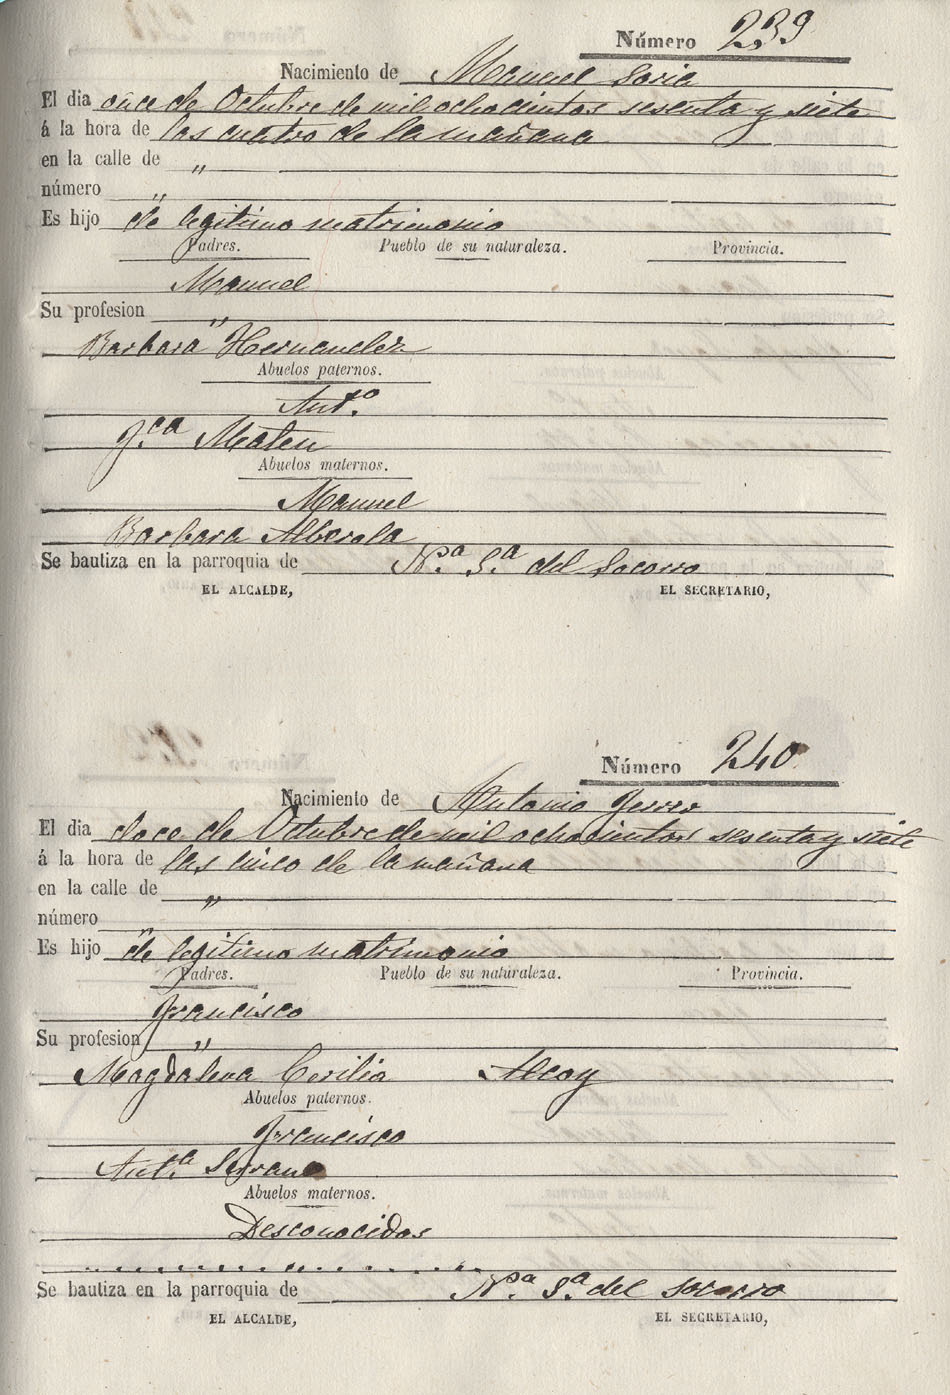 Número 239
Nacimiento de Manuel Soria
El dia once de Octubre de mil ochocientos sesenta y siete
á la hora de las cuatro de la mañana
en la calle de "
número "
Es hijo de legitimo matrimonio
Padres. Pueblo de su naturaleza. Provincia.
Manuel
Su profesion "
Barbara Hernandez
Abuelos paternos.
Ant.o
F.ca Mateu
Abuelos maternos.
Manuel
Barbara Alberola
Se bautiza en la parroquia de N.a S.a del Socorro
EL ALCALDE, EL SECRETARIO,
Número 240
Nacimiento de Antonio Ferro
El dia doce de Octubre de mil ochocientos sesenta y siete
á la hora de las cinco de la mañana
en la calle de "
número "
Es hijo de legitimo matrimonio
Padres. Pueblo de su naturaleza. Provincia.
Francisco
Su profesion "
Magdalena Alcoy
Abuelos paternos.
Francisco
Ant.a Serrano
Abuelos maternos.
Desconocidos
Se bautiza en la parroquia de N.a S.a del Socorro
EL ALCALDE, EL SECRETARIO,